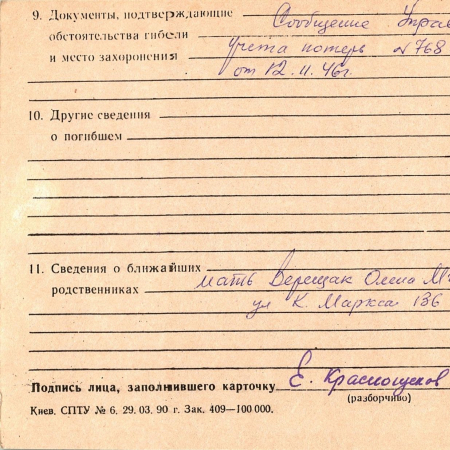 9. Документы, подтверждающие Сообщение Управ
обстоятельства гибели учета потерь №768
и место захоронения от 12.11.46г.
10. Другие сведения
о погибшем
11. Сведения о ближайших
родственниках мать Верещак Олена М
ул К. Маркса 136
Подпись лица, заполнившего карточку Е.
(разборчиво)
Киев. СПТУ № 6. 29. 03. 90 г. Зак. 409—100 000.